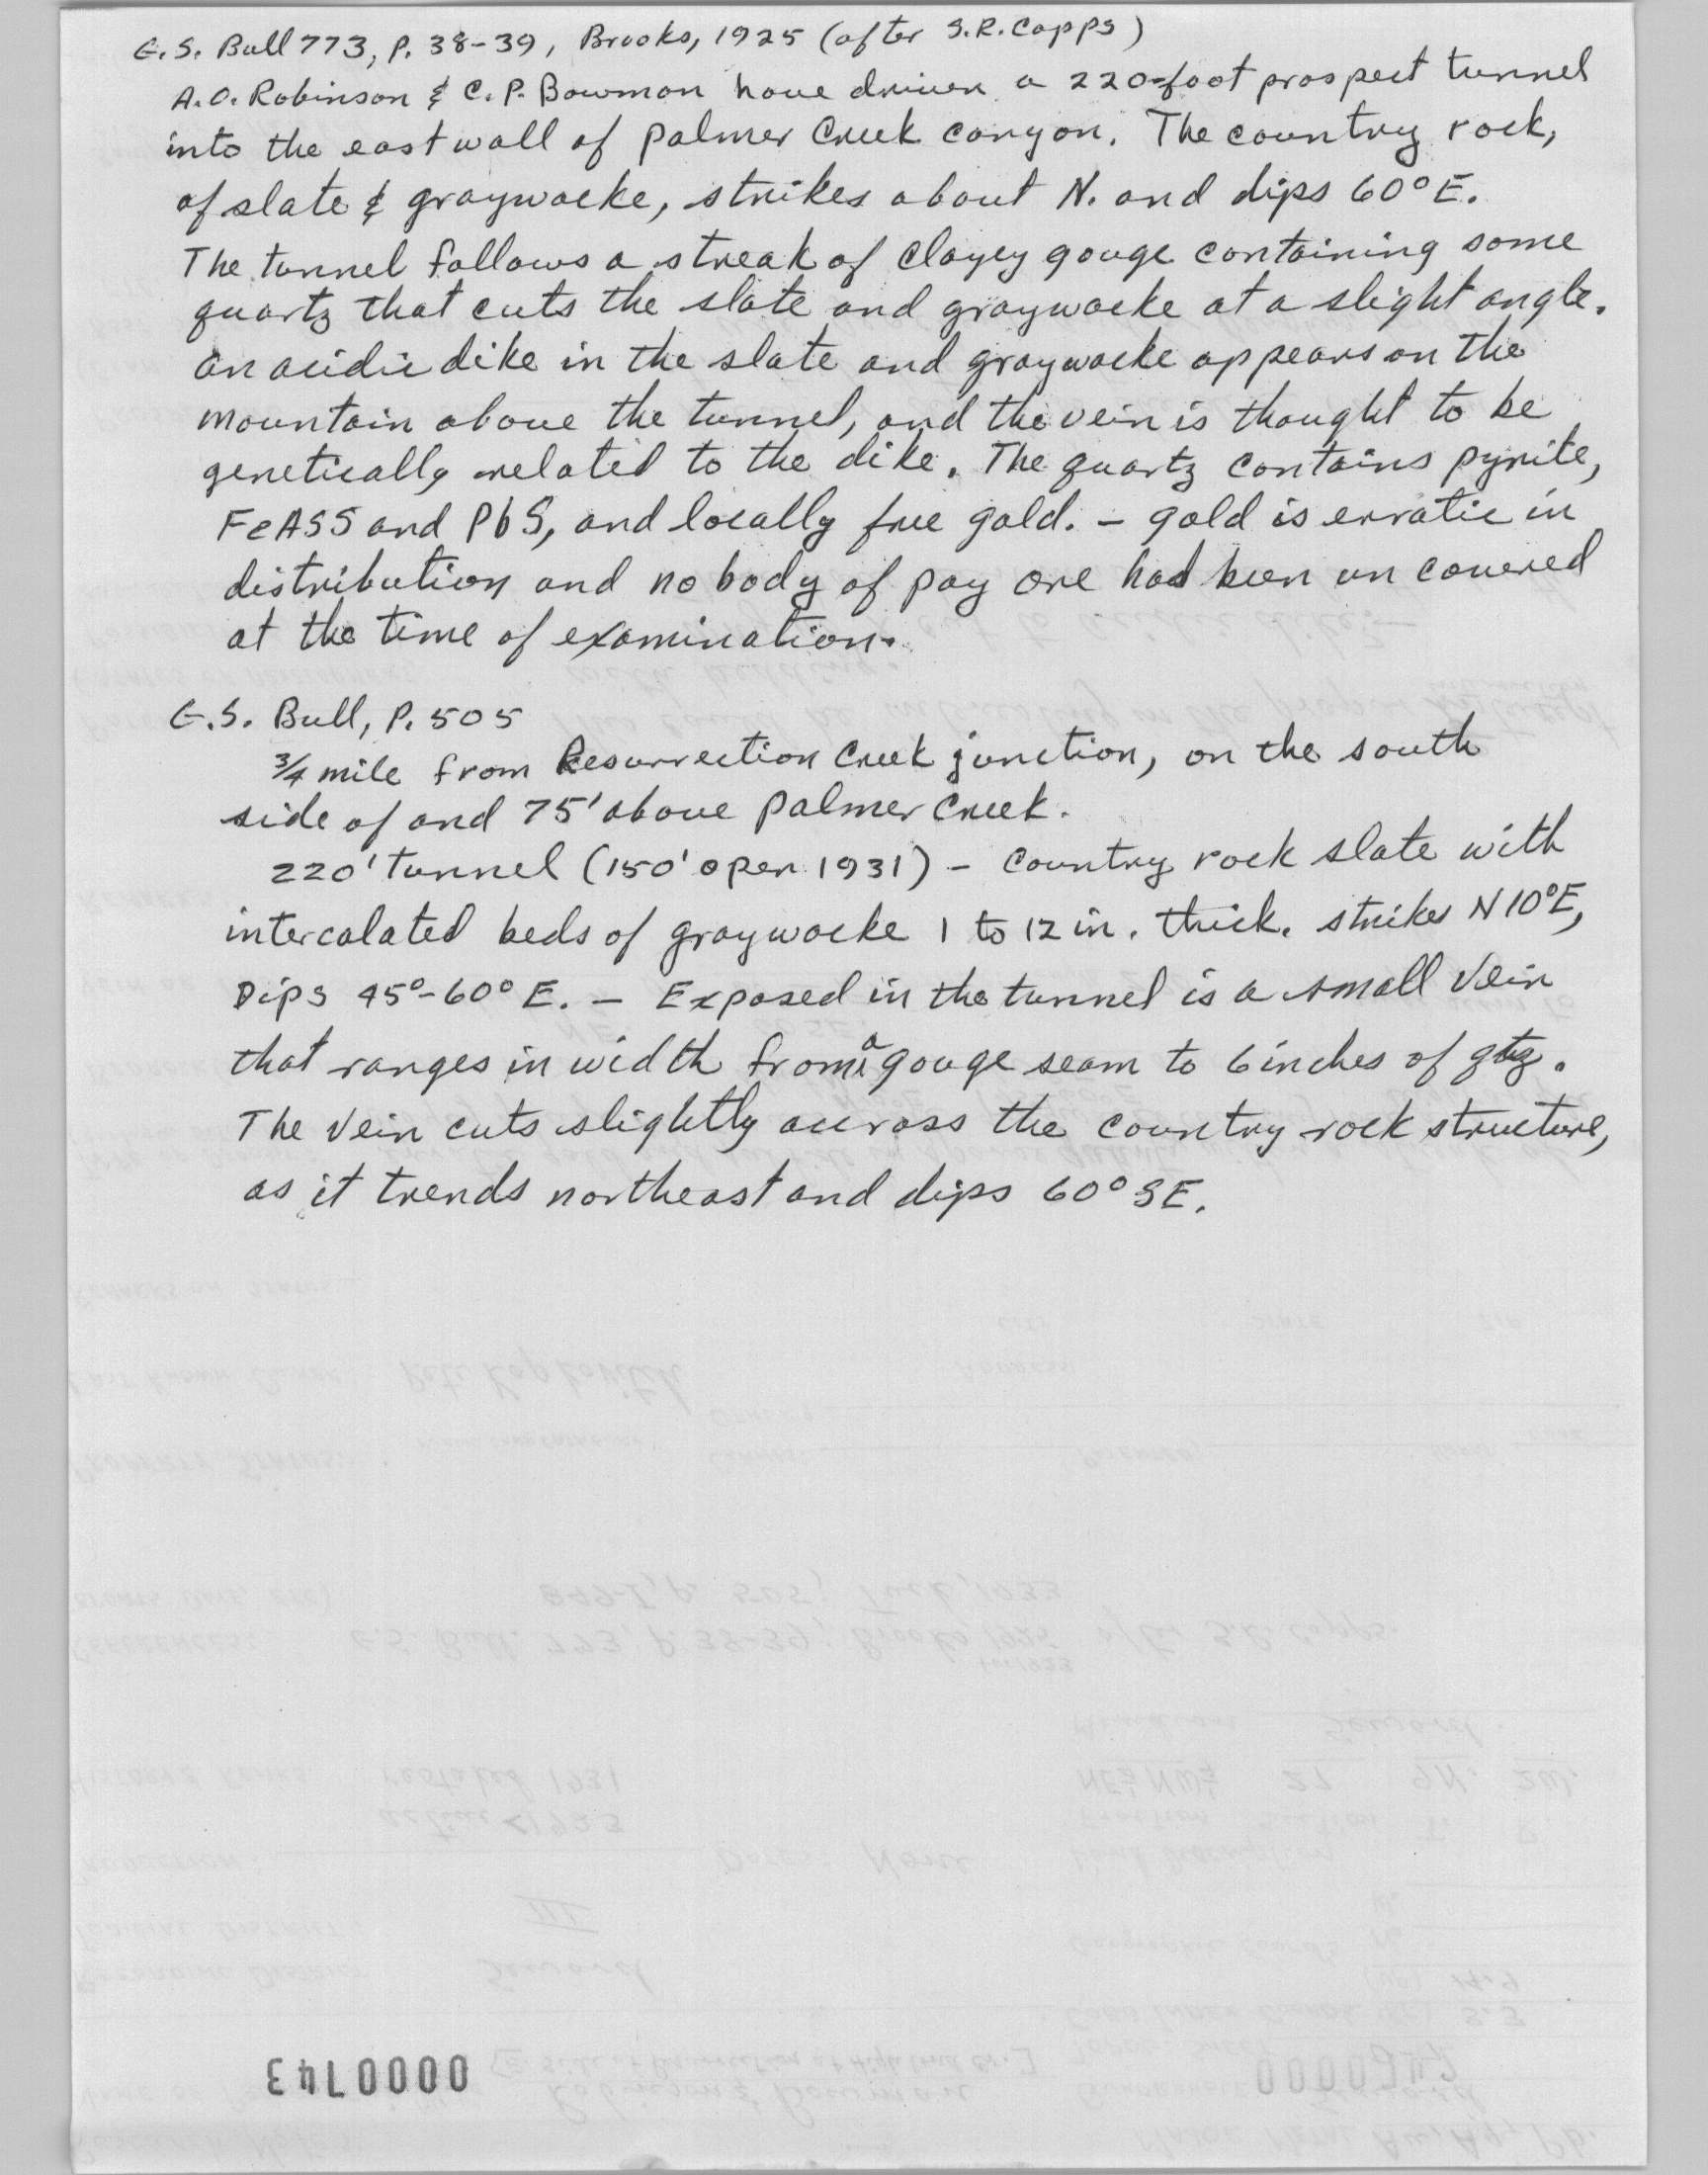 G.S. Bull 773, P. 38-39, Brooks, 1925 (after S.R. Capps)
A.O. Robinson & C.P. Bowman have driven a 220-foot prospect tunnel
into the east wall of Palmer Creek canyon. The country rock,
of slate & graywacke, strikes about N. and dips 60° E.
The tunnel follows a streak of clayey gouge containing some
quartz that cuts the slate and graywacke at a slight angle.
An acidic dike in the slate and graywacke appears on the
mountain above the tunnel, and the vein is thought to be
genetically related to the dike. The quartz contains pyrite,
FeASS and PbS, and locally free gold. – gold is erratic in
distribution and no body of pay ore had been un covered
at the time of examination.
G.S. Bull, P. 505
3/4 mile from Resurrection Creek junction, on the south
side of and 75' above Palmer Creek.
220' tunnel (150' open 1931) – Country rock slate with
intercalated beds of graywacke 1 to 12 in. thick. strikes N10°E,
Dips 45°-60° E. – Exposed in the tunnel is a small vein
that ranges in width from a gouge seam to 6 inches of qtz.
The vein cuts slightly across the country rock structure,
as it trends northeast and dips 60° SE.
0000743